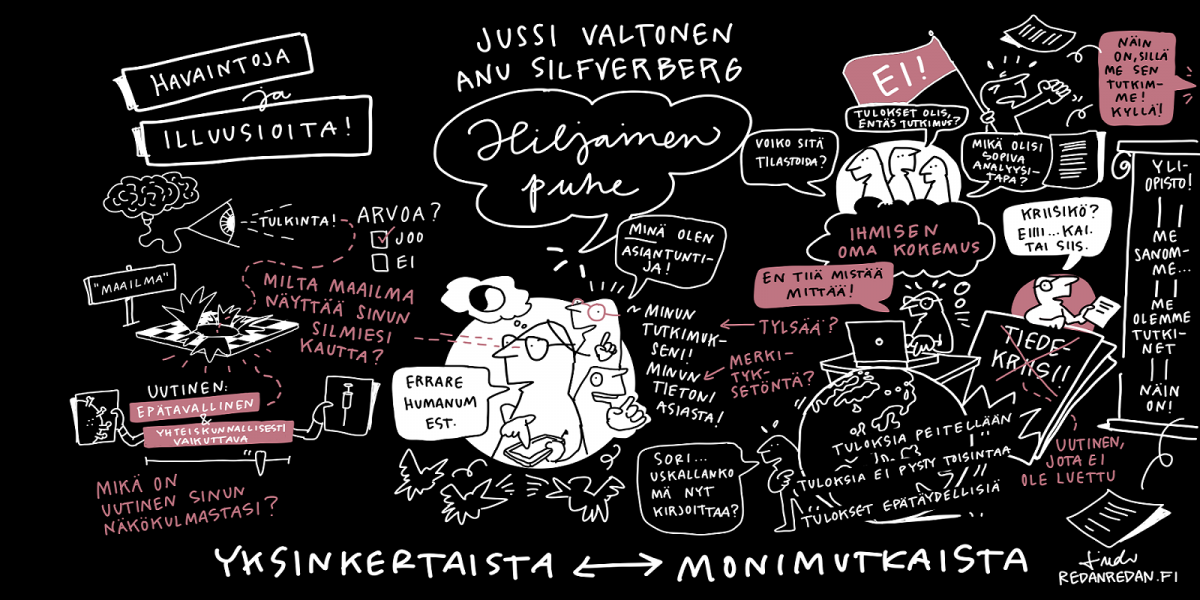 HAVAINTOJA
ja
ILLUUSIOITA!
JUSSI VALTONEN
ANU SILFVERBERG
Hiljainen
puhe
TULKINTA!
ARVOA?
JOO
EI
"MAAILMA"
MILTA MAAILMA
NÄYTTÄÄ SINUN
SILMIESI
KAUTTA?
UUTINEN:
EPÄTAVALLINEN
&
YHTEISKUNNALLISESTI
VAIKUTTAVA
MIKÄ ON
UUTINEN SINUN
NÄKÖKULMASTASI?
ERRARE
HUMANUM
EST.
MINÄ OLEN
ASIANTUNTI-
JA!
~ MINUN
TUTKIMUK-
SENI!
MINUN
TIETONI
ASIASTA!
TYLSÄÄ?
MERKI-
TYK-
SETÖNTÄ?
EI!
TULOKSET OLIS,
ENTÄS TUTKIMUS?
VOIKO SITÄ
TILASTOIDA?
MIKÄ OLISI
SOPIVA
ANALYYSI-
TAPA?
IHMISEN
OMA KOKEMUS
NÄIN
ON, SILLÄ
ME SEN
TUTKIM-
ME!
KYLLÄ!
EN TIIÄ MISTÄÄ
MITTÄÄ!
KRIISIKÖ?
EIII... KAI.
TAI SIIS.
TIEDE-
KRIISI!
YLI-
OPISTO!
ME
SANOM-
ME...
ME
OLEMME
TUTKI-
NEET
NÄIN
ON!
SORI...
USKALLANKO
MÄ NYT
KIRJOITTAA?
TULOKSIA PEITELLÄÄN
TULOKSIA EI PYSTY TOISINTAA
TULOKSET EPÄTÄYDELLISIÄ
UUTINEN,
JOTA EI
OLE LUETTU
YKSINKERTAISTA ↔ MONIMUTKAISTA
REDANREDAN.FI